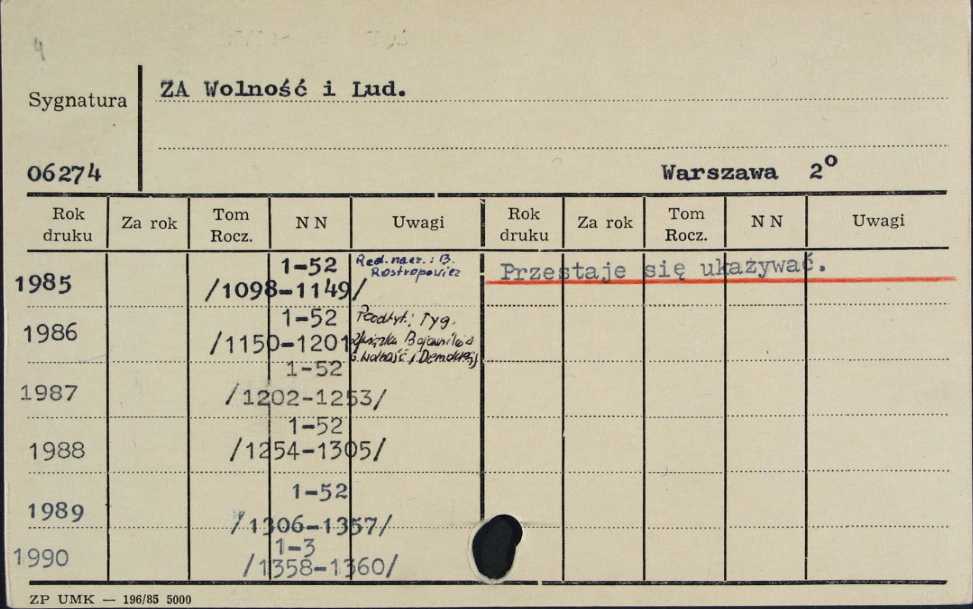 4
ZA Wolność i Lud.
Sygnatura
06274
Warszawa 2º
Rok druku Za rok Tom Rocz. N N Uwagi Rok druku Za rok Tom Rocz. N N Uwagi
1-52 Red. nacz.: B.
1985 /1098-1149/ Rostropowicz Przestaje się ukazywać.
1-52 Podtyt.: Tyg.
1986 /1150-1201/ Związku Bojowników
o Wolność i Demokrację
1-52
1987 /1202-1253/
1-52
1988 /1254-1305/
1-52
1989 /1306-1357/
1-3
1990 /1358-1360/
ZP UMK — 196/85 5000